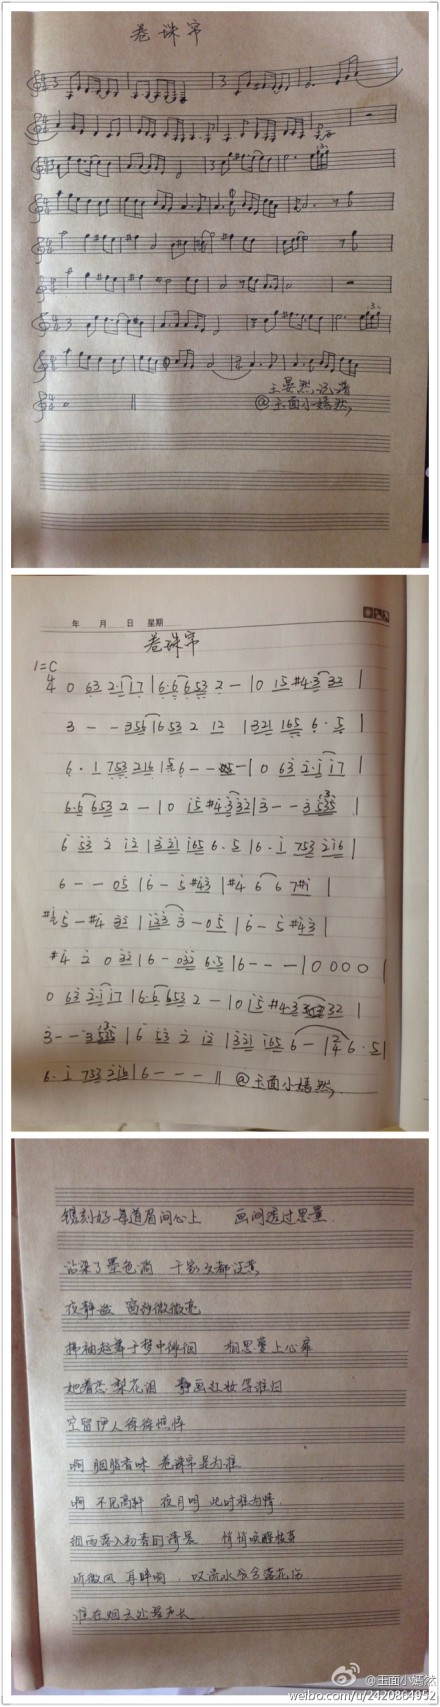 卷珠帘
王面小嫣然
@玉面小嫣然
年 月 日 星期
卷珠帘
1=C
4/4 0 63 2·1 17 | 6·6 6653 2 — | 0 15 #4·3 332 |
3 — — 356 | 1653 2 12 | 321 165 6·5 |
6·1 753 216 | 6 — — — | 0 63 2·1 17 |
6·6 6653 2 — | 0 15 #4·3 332 | 3 — — 3 535 |
6 53 2 12 | 321 165 6·5 | 6·1 753 216 |
6 — — 05 | 6 — 5 #43 | #4 6 6 7#1 |
#4 2 0 32 | 6 — 032 6·5 | 6 — — — | 0 0 0 0 |
3 — — 3 535 | 6 53 2 12 | 321 165 6 — | 2/4 6·5 |
6·1 753 216 | 6 — — — || @玉面小嫣然
镌刻好 每道眉间心上 画间透过思量
沾染了墨色淌 千家文都泛黄
夜静谧 窗纱微微亮
拂袖起舞于梦中徘徊 相思蔓上心扉
她眷恋 梨花泪 静画红妆等谁归
空留伊人徐徐憔悴
啊 胭脂香味 卷珠帘是为谁
啊 不见高轩 夜月明 此时难为情
细雨落入初春的清晨 悄悄唤醒枝芽
听微风 耳畔响 叹流水兮落花伤
谁在烟云处琴声长
@玉面小嫣然
weibo.com/u/2420864952